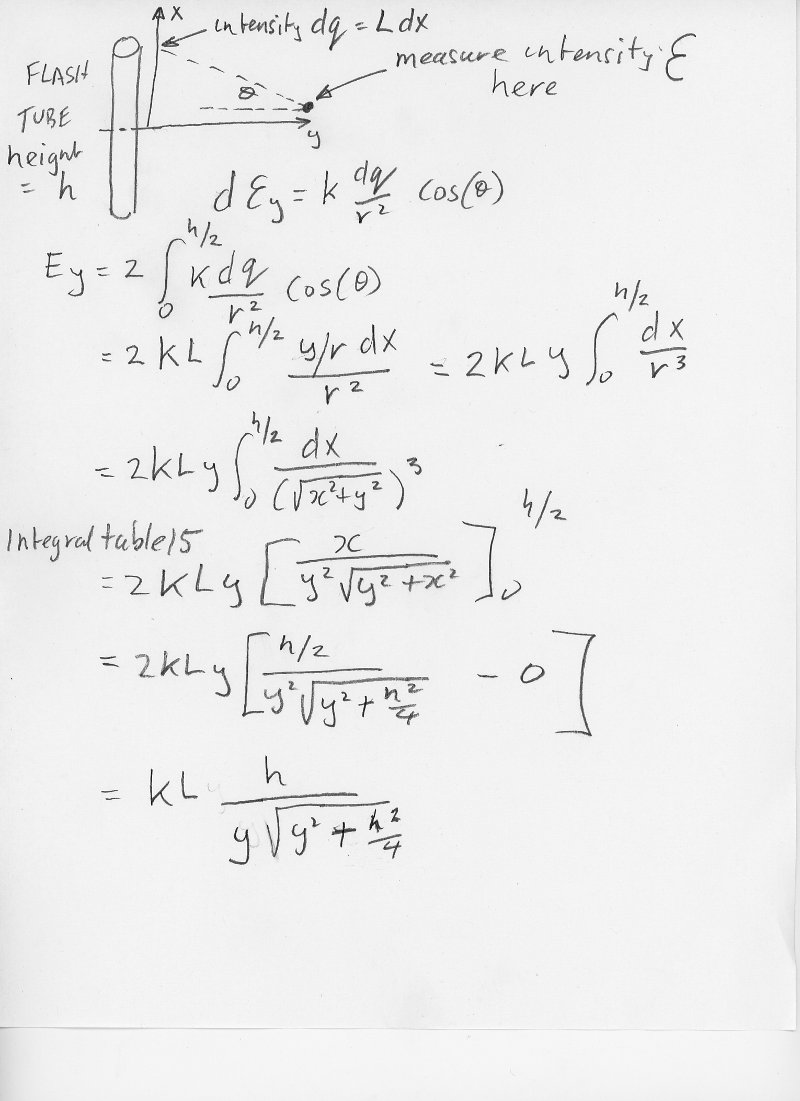 x
intensity dq = L dx
measure intensity ℰ
here
FLASH
TUBE
height
= h
θ
y
dℰy = k dq/r² cos(θ)
Ey = 2 ∫₀^{h/2} k dq/r² cos(θ)
= 2kL ∫₀^{h/2} (y/r dx)/r² = 2kLy ∫₀^{h/2} dx/r³
= 2kLy ∫₀^{h/2} dx/(√(x²+y²))³
Integral table 15
= 2kLy [x/(y²√(y²+x²))]₀^{h/2}
= 2kLy [(h/2)/(y²√(y²+h²/4)) - 0]
= kL h/(y√(y²+h²/4))